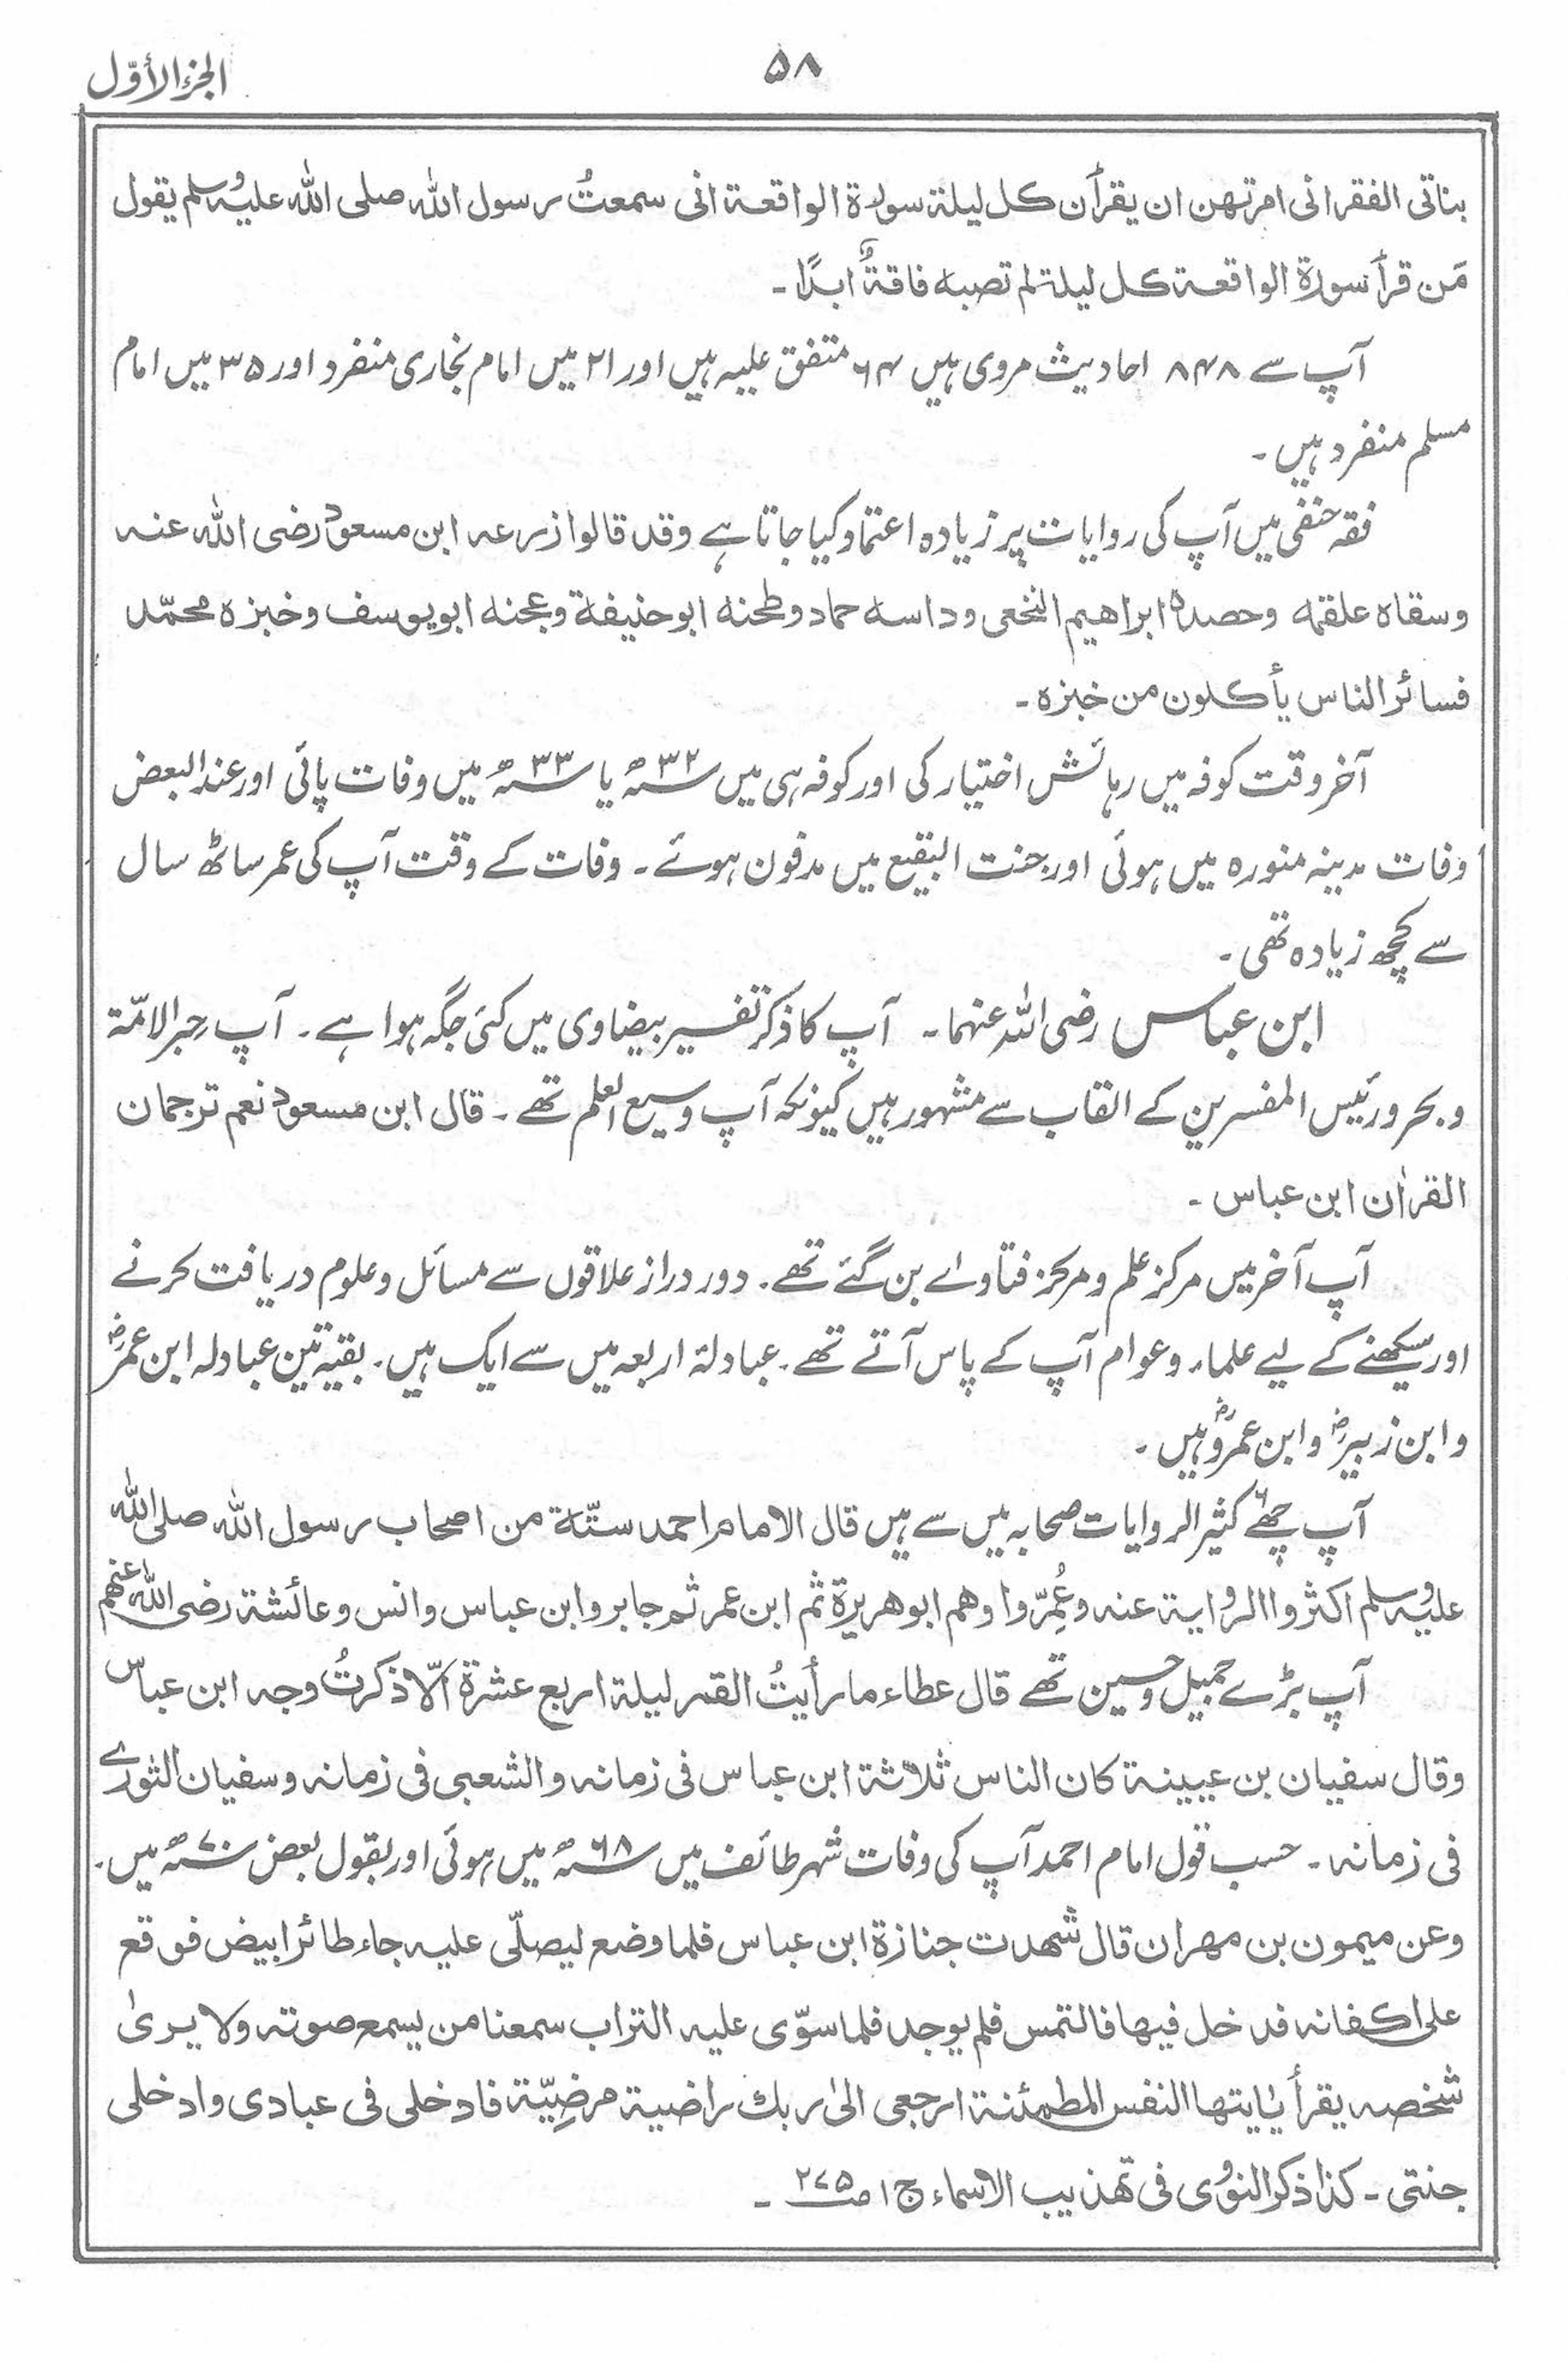 الجزء الأوّل
۵۸
بناتی الفقر انی امرتهن ان یقرأن کل لیلة سورة الواقعة انی سمعتُ رسول الله صلی الله علیہ وسلم یقول
مَن قرأ سورة الواقعة کل لیلة لم تصبه فاقةٌ ابدًا۔
آپ سے ۸۴۸ احادیث مروی ہیں ۶۴ متفق علیہ ہیں اور ۲۱ میں امام بخاری منفرد اور ۳۵ میں امام
مسلم منفرد ہیں۔
فقہ حنفی میں آپ کی روایات پر زیادہ اعتماد کیا جاتا ہے وقد قالوا زرعه ابن مسعودؓ رضی الله عنه
وسقاه علقمه وحصده ابراهیم النخعی وداسه حماد وطحنه ابو حنیفة وعجنه ابو یوسف وخبزه محمّد
فسائر الناس یأکلون من خبزه۔
آخر وقت کوفہ میں رہائش اختیار کی اور کوفہ ہی میں ۳۲ھ یا ۳۳ھ میں وفات پائی اور عند البعض
وفات مدینہ منورہ میں ہوئی اور جنت البقیع میں مدفون ہوئے۔ وفات کے وقت آپ کی عمر ساٹھ سال
سے کچھ زیادہ تھی۔
ابن عباس رضی اللہ عنہما۔ آپ کا ذکر تفسیر بیضاوی میں کئی جگہ ہوا ہے۔ آپ حِبر الامّۃ
و بحر و رئیس المفسرین کے القاب سے مشہور ہیں کیونکہ آپ وسیع العلم تھے۔ قال ابن مسعودؓ نعم ترجمان
القرآن ابن عباس۔
آپ آخر میں مرکز علم و مرکز فتاوے بن گئے تھے۔ دور دراز علاقوں سے مسائل و علوم دریافت کرنے
اور سیکھنے کے لیے علماء و عوام آپ کے پاس آتے تھے۔ عبادلۃ اربعہ میں سے ایک ہیں۔ بقیہ تین عبادلہ ابن عمرؓ
و ابن زبیرؓ و ابن عمروؓ ہیں۔
آپ چھٹے کثیر الروایات صحابہ میں سے ہیں قال الامام احمد ستّة من اصحاب رسول الله صلی الله
علیہ وسلم اکثروا الروایة عنه وعُمِّروا وهم ابو هریرة ثم ابن عمر ثم جابر وابن عباس وانس وعائشة رضی الله عنهم
آپ بڑے جمیل و حسین تھے قال عطاء ما رأیتُ القمر لیلة اربع عشرة الّا ذکرتُ وجه ابن عباس
وقال سفیان بن عیینة کان الناس ثلاثة ابن عباس فی زمانه والشعبی فی زمانه وسفیان الثوری
فی زمانه۔ حسب قول امام احمد آپ کی وفات شہر طائف میں ۶۸ھ میں ہوئی اور بقول بعض ۷۰ھ میں۔
وعن میمون بن مهران قال شهدت جنازة ابن عباس فلما وضع لیصلّی علیه جاء طائر ابیض فوقع
علی اکفانه فدخل فیها فالتمس فلم یوجد فلما سوّی علیه التراب سمعنا من یسمع صوته ولا یری
شخصه یقرأ یٰایتها النفس المطمئنة ارجعی الیٰ ربك راضیة مرضیّة فادخلی فی عبادی وادخلی
جنتی۔ کذا ذکر النووی فی تهذیب الاسماء ج ۱ ص ۲۷۵۔